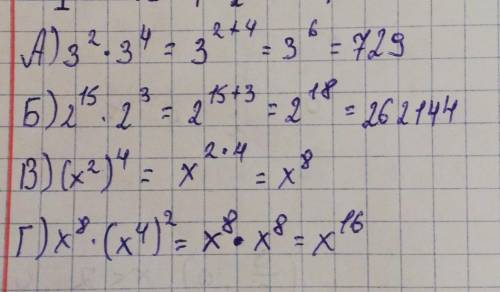 А) 3² · 3⁴ = 3²⁺⁴ = 3⁶ = 729
Б) 2¹⁵ · 2³ = 2¹⁵⁺³ = 2¹⁸ = 262144
В) (x²)⁴ = x²˙⁴ = x⁸
Г) x⁸ · (x⁴)² = x⁸ · x⁸ = x¹⁶